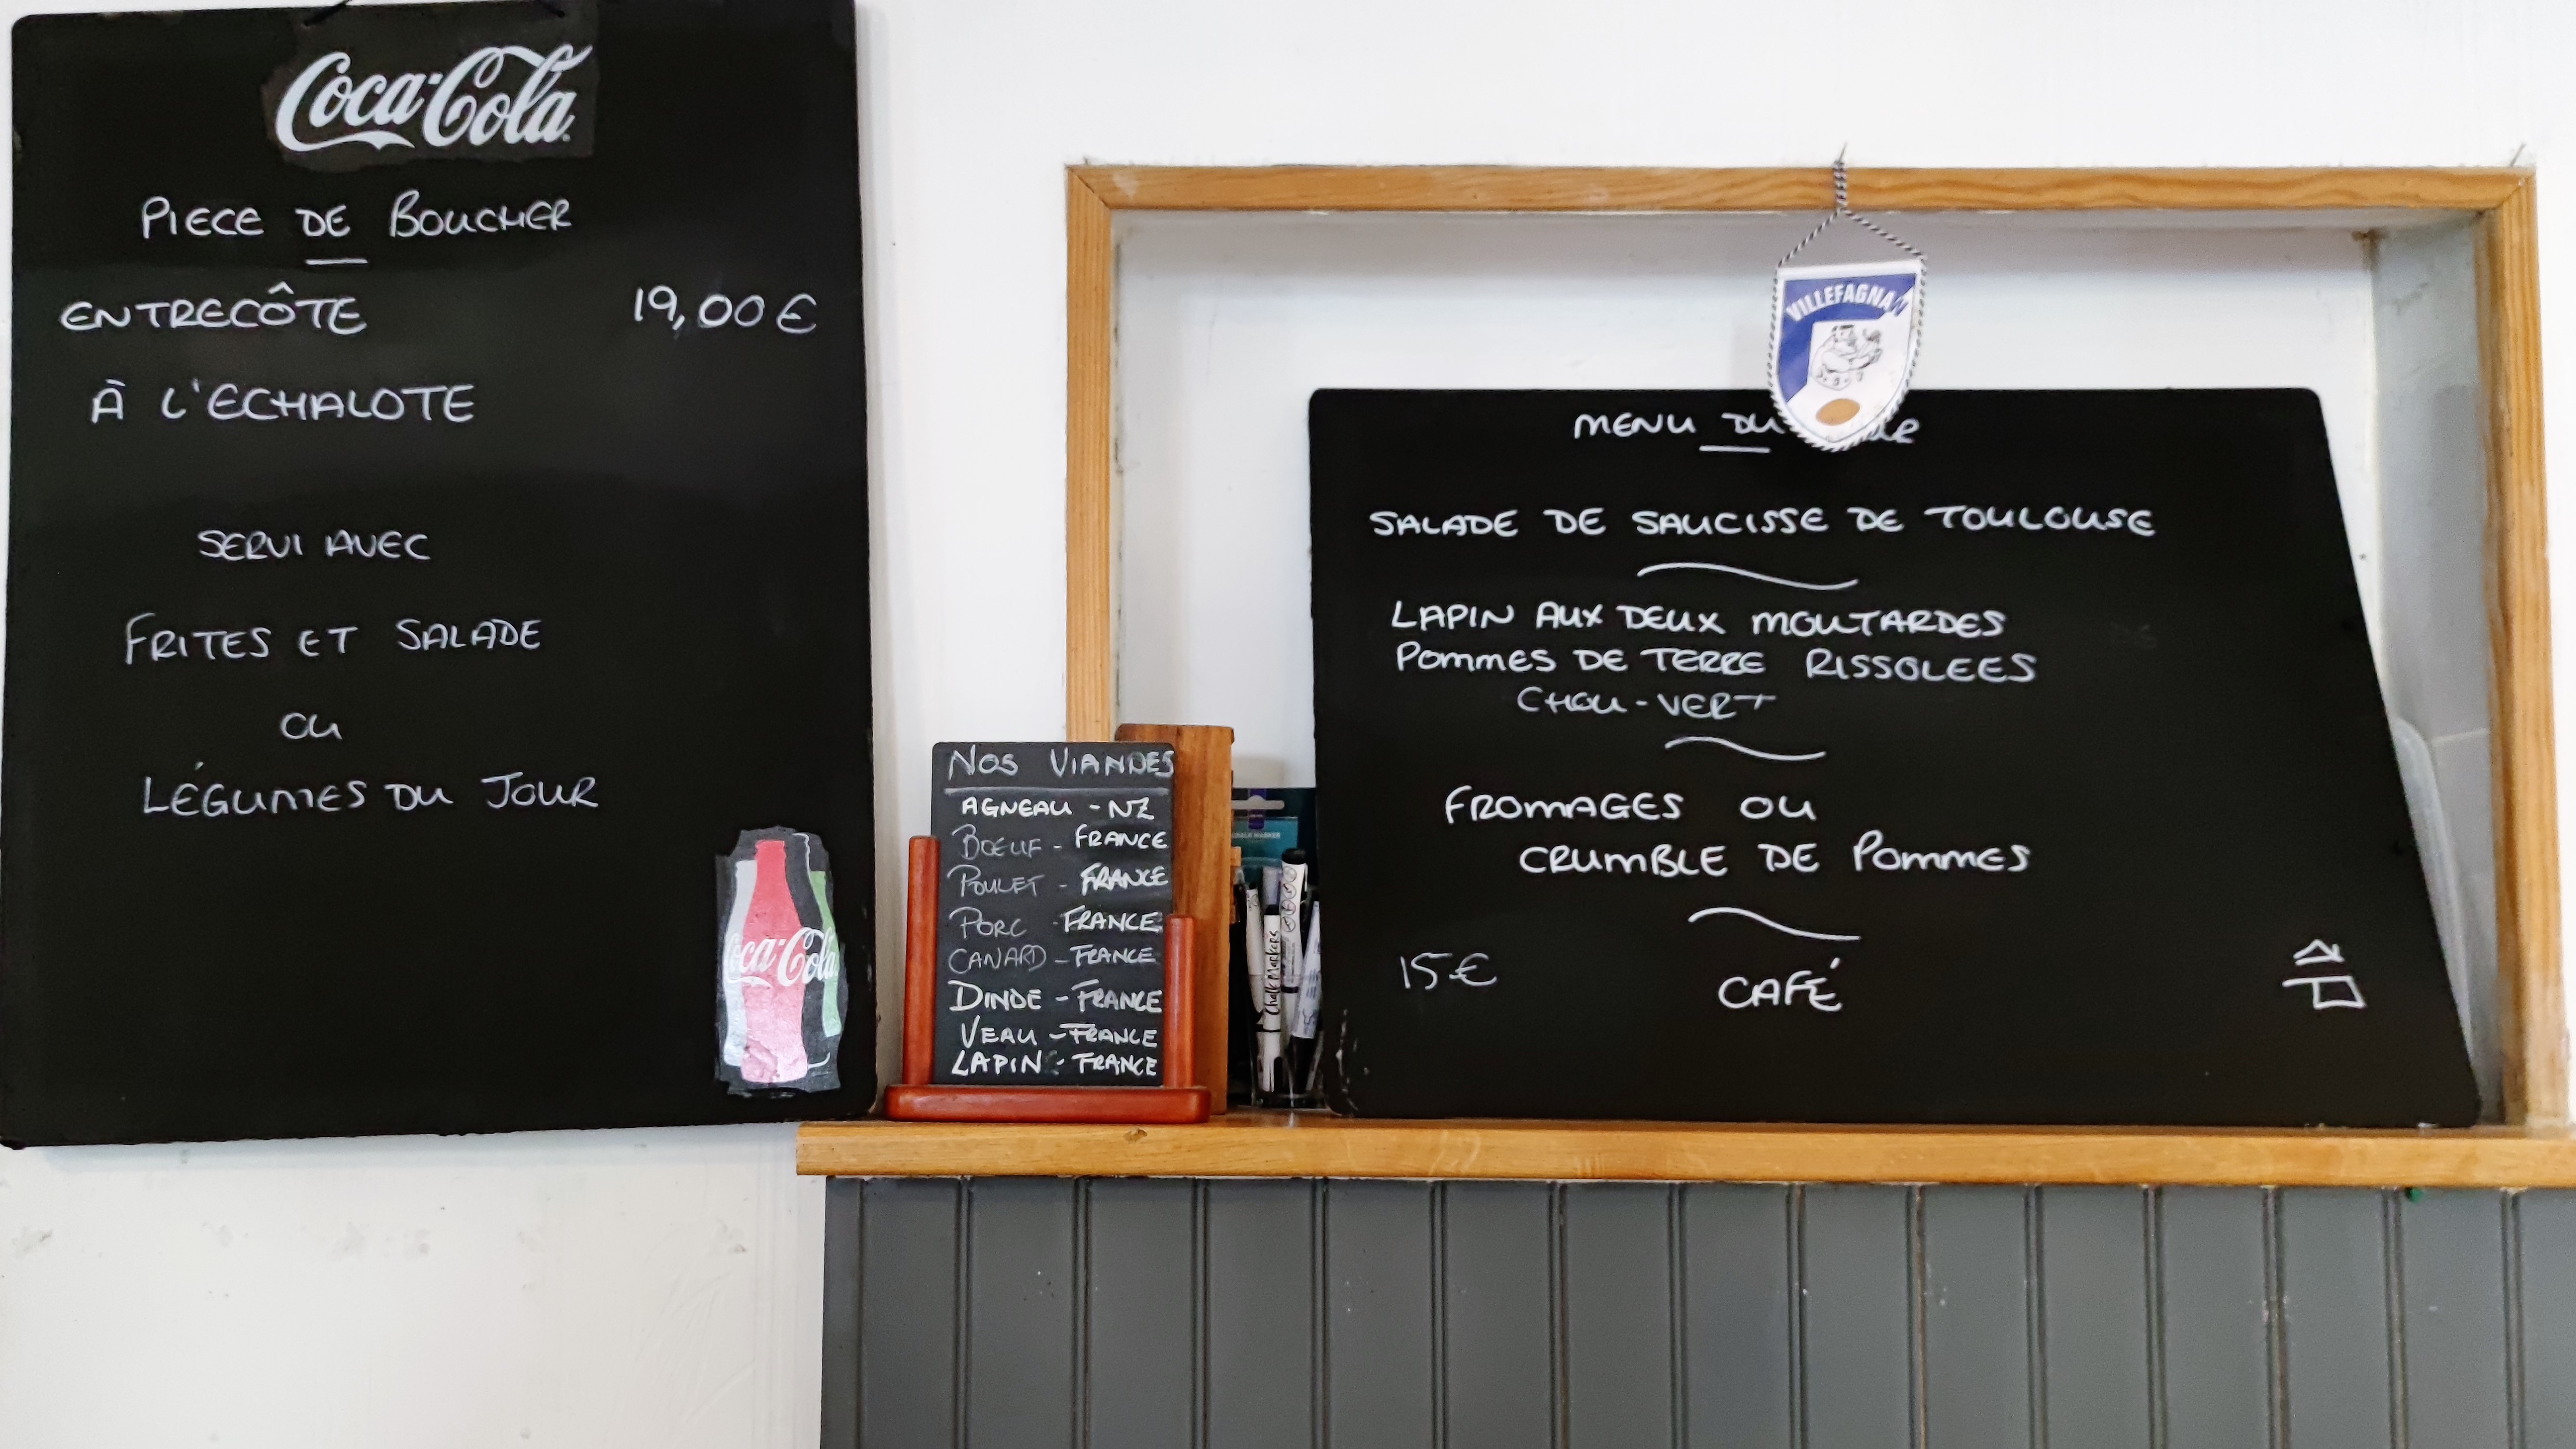 Coca-Cola
PIECE DE BOUCHER
ENTRECÔTE 19,00€
À L'ECHALOTE
SERVI AVEC
FRITES ET SALADE
OU
LÉGUMES DU JOUR
Coca-Cola
NOS VIANDES
AGNEAU - NZ
BŒUF - FRANCE
POULET - FRANCE
PORC - FRANCE
CANARD - FRANCE
DINDE - FRANCE
VEAU - FRANCE
LAPIN - FRANCE
CHALK MARKER
Chalk Markers
VILLEFAGNAN
MENU DU
SALADE DE SAUCISSE DE TOULOUSE
LAPIN AUX DEUX MOUTARDES
POMMES DE TERRE RISSOLEES
CHOU-VERT
FROMAGES OU
CRUMBLE DE POMMES
15€
CAFÉ